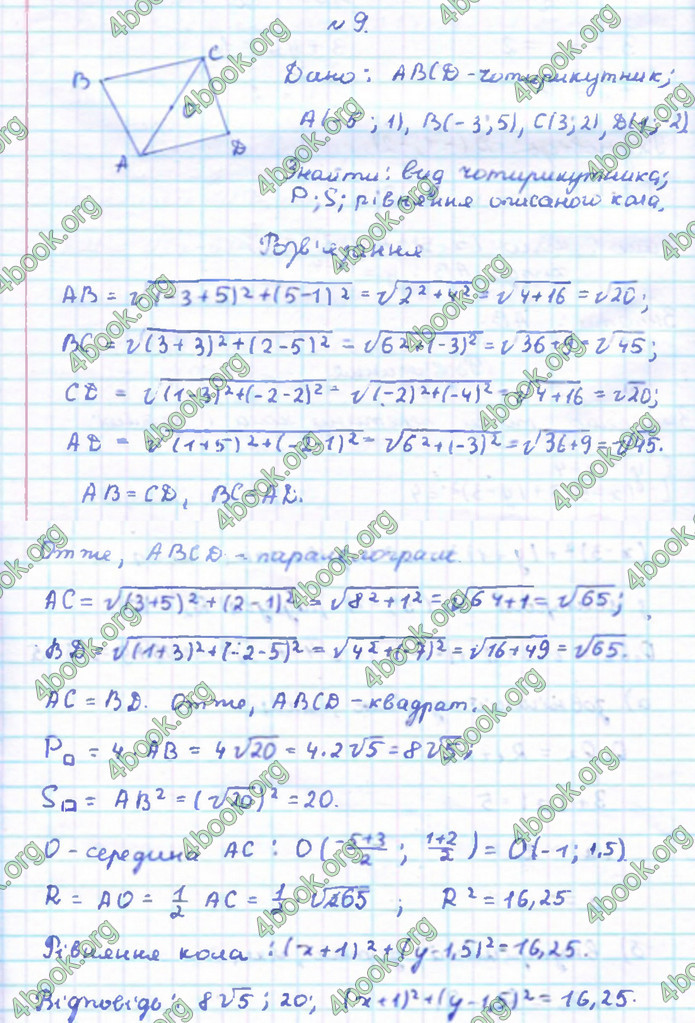 № 9.
B C O A D
Дано: ABCD - чотирикутник;
A(-5; 1), B(-3; 5), C(3; 2), D(1; -2)
Знайти: вид чотирикутника;
P; S; рівняння описаного кола.
Розв'язання
AB = √((-3+5)²+(5-1)²) = √(2²+4²) = √(4+16) = √20;
BC = √((3+3)²+(2-5)²) = √(6²+(-3)²) = √(36+9) = √45;
CD = √((1-3)²+(-2-2)²) = √((-2)²+(-4)²) = √(4+16) = √20;
AD = √((1+5)²+(-2-1)²) = √(6²+(-3)²) = √(36+9) = √45.
AB = CD, BC = AD.
Отже, ABCD - паралелограм.
AC = √((3+5)²+(2-1)²) = √(8²+1²) = √(64+1) = √65;
BD = √((1+3)²+(-2-5)²) = √(4²+(-7)²) = √(16+49) = √65.
AC = BD. Отже, ABCD - квадрат.
P□ = 4·AB = 4√20 = 4·2√5 = 8√5;
S□ = AB² = (√20)² = 20.
O - середина AC: O((-5+3)/2; (1+2)/2) = O(-1; 1,5)
R = AO = 1/2 AC = 1/2·√65; R² = 16,25
Рівняння кола: (x+1)²+(y-1,5)² = 16,25.
Відповідь: 8√5; 20; (x+1)²+(y-1,5)² = 16,25.
4book.org